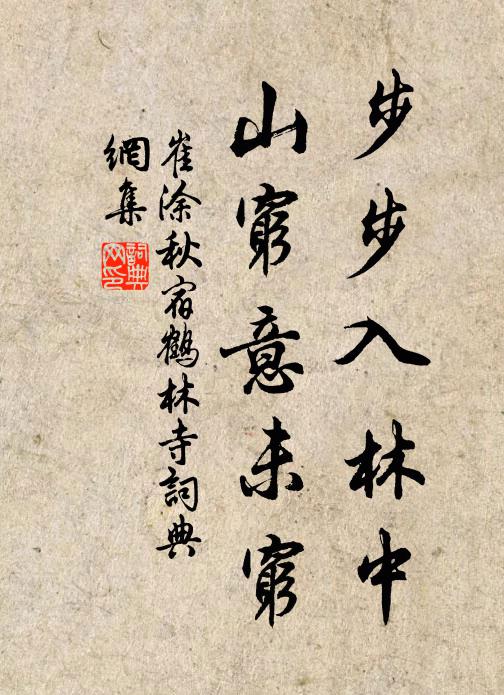 步步入林中
山窮意未窮
崔涂秋宿鶴林寺詞典
網集
詞典
网印